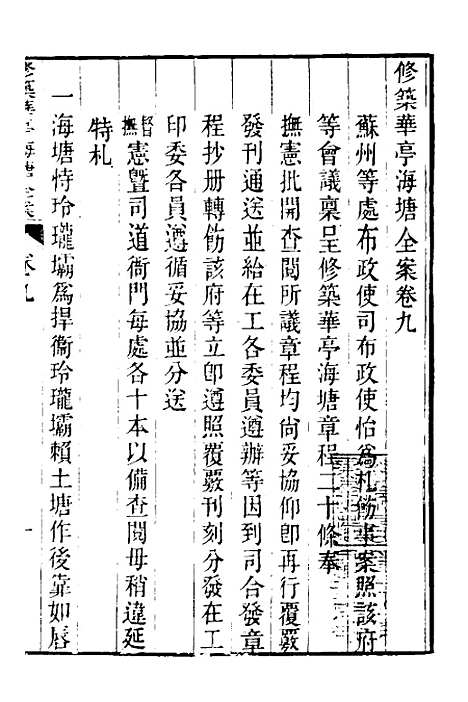 修築華亭海塘全案卷九
蘇州等處布政使司布政使怡爲札飭事案照該府
等會議稟呈修築華亭海塘章程二十條奉
撫憲批開查閱所議章程均尚妥協仰即再行覆覈
發刊通送並給在工各委員遵辦等因到司合發章
程抄册轉飭該府等立即遵照覆覈刊刻分發在工
印委各員遵循妥協並分送
督撫憲曁司道衙門每處各十本以備查閱毋稍違延
特札
一海塘恃玲瓏壩爲捍衞玲瓏壩賴土塘作後靠如脣
修築華亭海塘全案 卷九 一